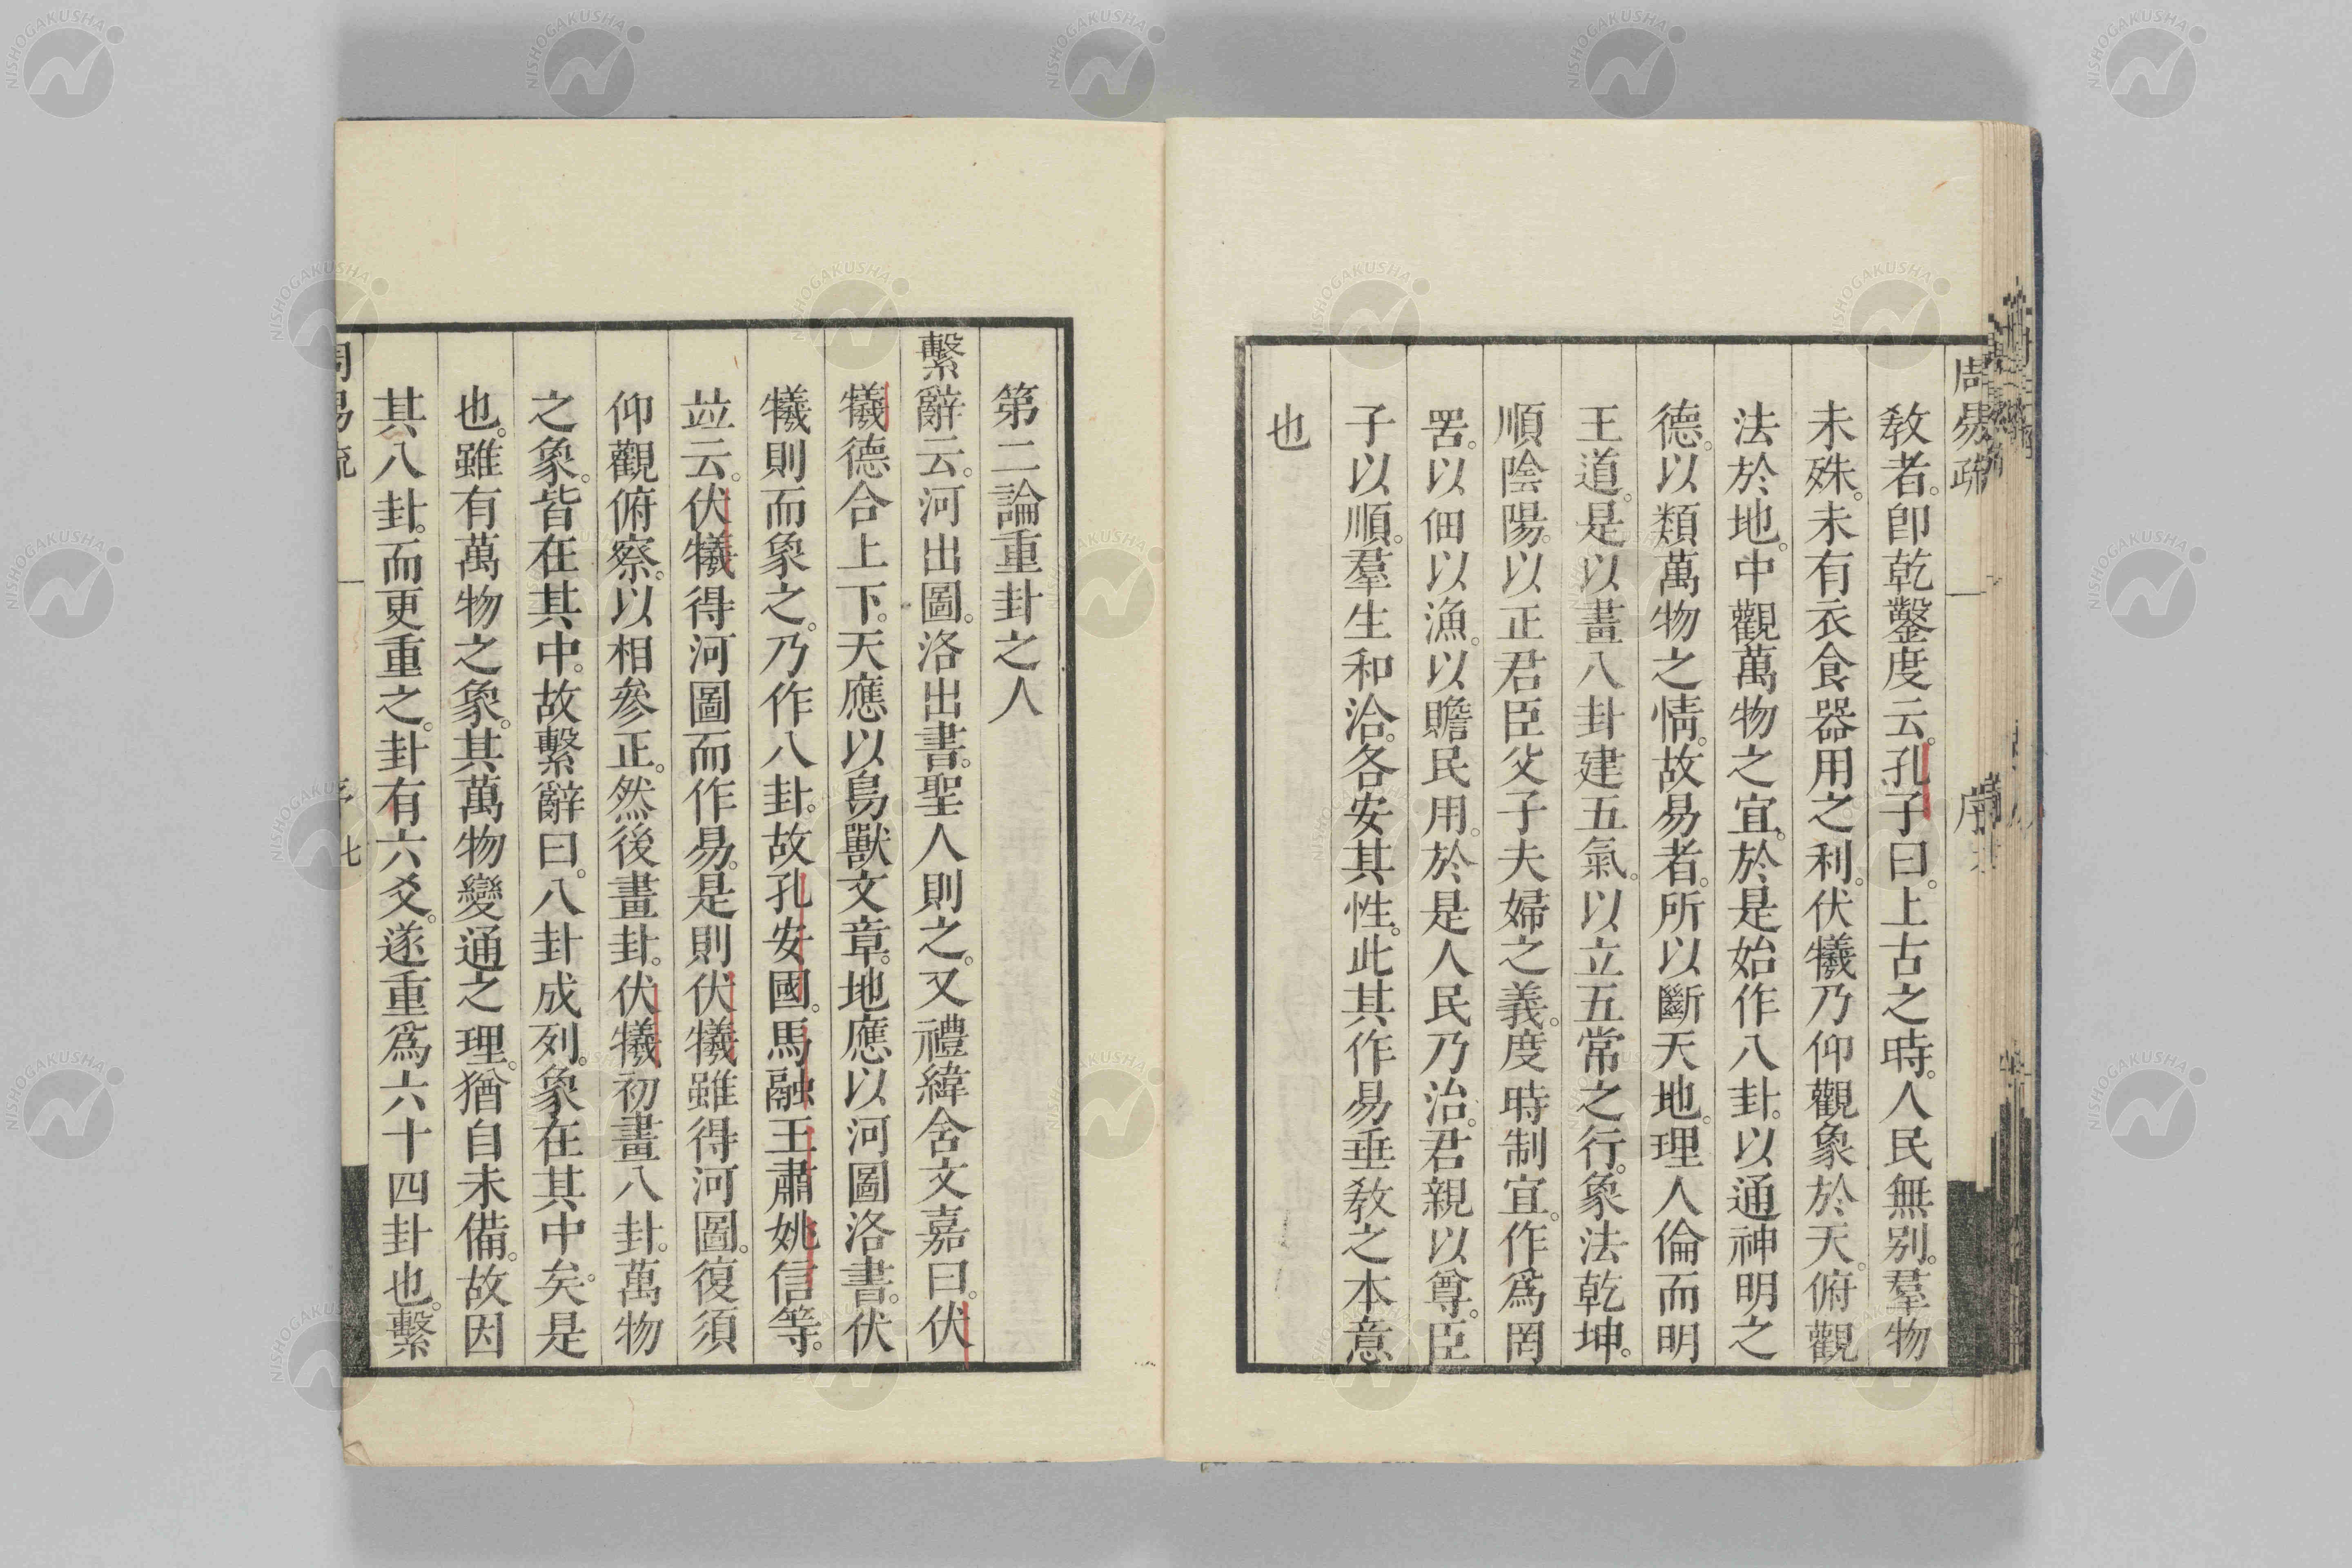 周易疏 一 序
敎者。卽乾鑿度云。孔子曰。上古之時。人民無別。羣物
未殊。未有衣食器用之利。伏犧乃仰觀象於天。俯觀
法於地。中觀萬物之宜。於是始作八卦。以通神明之
德。以類萬物之情。故易者。所以斷天地。理人倫而明
王道。是以畫八卦建五氣。以立五常之行。象法乾坤。
順陰陽。以正君臣父子夫婦之義。度時制宜。作爲罔
罟。以佃以漁。以贍民用。於是人民乃治。君親以尊。臣
子以順。羣生和洽。各安其性。此其作易垂敎之本意
也
第二論重卦之人
繫辭云。河出圖。洛出書。聖人則之。又禮緯含文嘉曰。伏
犧德合上下。天應以鳥獸文章。地應以河圖洛書。伏
犧則而象之。乃作八卦。故孔安國。馬融王肅姚信等。
竝云。伏犧得河圖而作易。是則伏犧雖得河圖。復須
仰觀俯察。以相參正。然後畫卦。伏犧初畫八卦。萬物
之象。皆在其中。故繫辭曰。八卦成列。象在其中矣。是
也。雖有萬物之象。其萬物變通之理。猶自未備。故因
其八卦。而更重之。卦有六爻。遂重爲六十四卦也。繫
周易疏 一 序 七
NISHOGAKUSHA